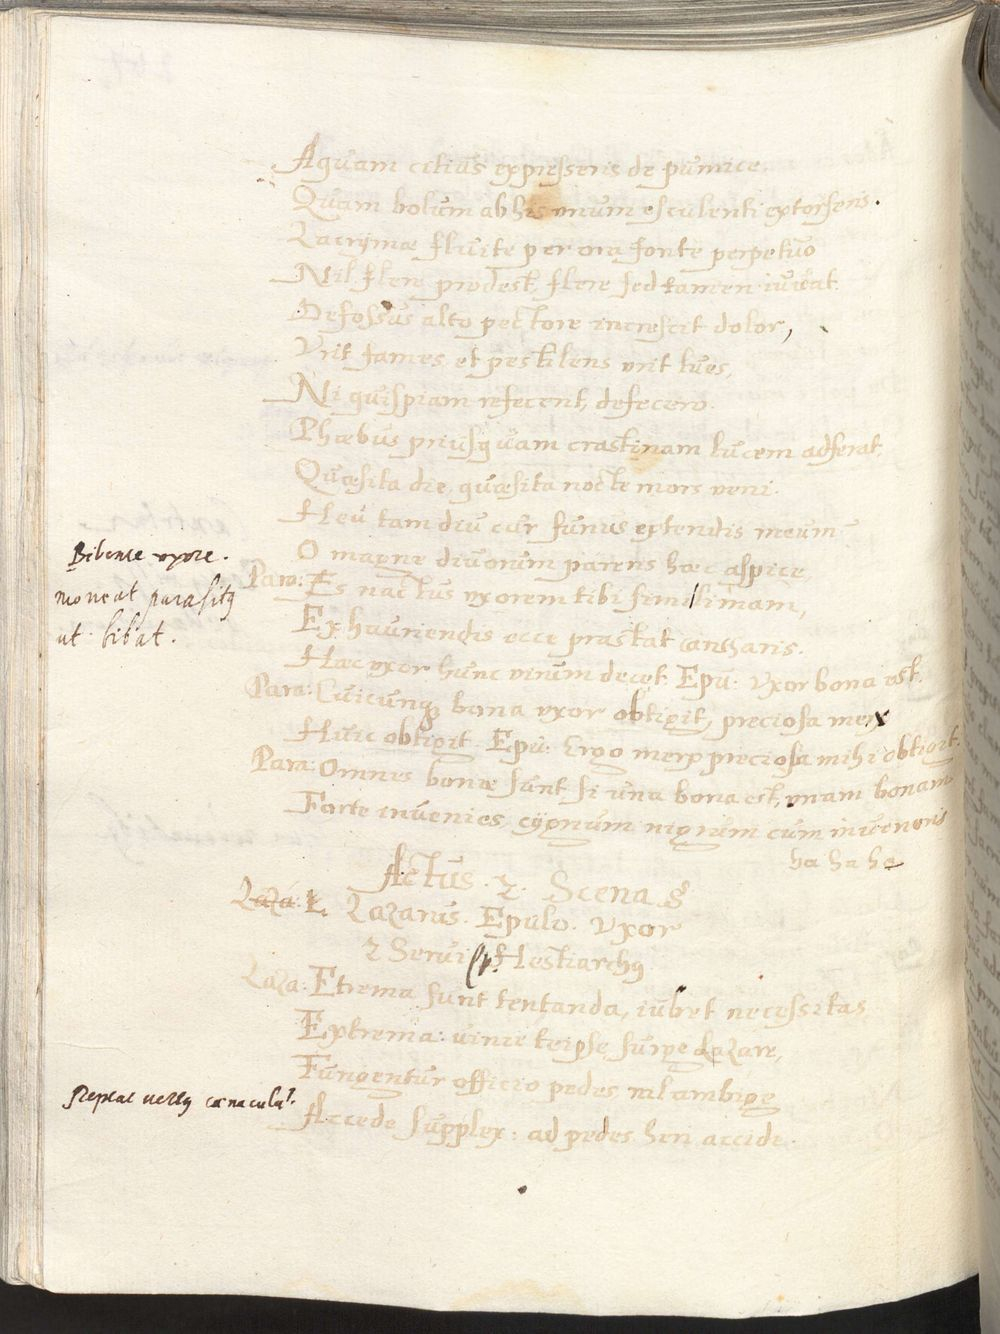 Aquam citius expresseris de pumice,
Quam bolum ab his vnum esculenti extorseris.
Lacrymae fluite per ora fonte perpetuo
Nil flere prodest, flere sed tamen iuuat.
Defossus alto pectore increscit dolor,
Vrit fames, et pestilens vrit lues,
Ni quispiam refecerit, defecero.
Phaebus priusquam crastinam lucem adferat,
Quaesita die, quaesita nocte mors veni.
Heu tam diu cur funus extendis meum
O magne diuorum parens haec aspice,
Bibente vxore.
moneat parasitꝰ
ut bibat.
Para: Es nactus vxorem tibi similimam,
Exhauriendis ecce prastat cantharis.
Haec vxor hunc virum decet. Epu: Vxor bona est.
Para: Cuicunqꝫ bona vxor obtigit, preciosa merx
Huic obtigit. Epu: Ergo merx preciosa mihi obtigit.
Para: Omnes bonae sunt si una bona est, vnam bonam
Forte inuenies, cygnum nigrum cum inueneris
ha ha he
Actus. 2. Scena. 8
Laza: L. Lazarus. Epulo. Vxor
2 Serui Hestiarchꝰ
Laza: Etrema sunt tentanda, iubet necessitas
Extrema: vince teipse, surge Lazare,
Fungentur officio pedes nil ambige
Reptat versꝰ caenacula.
Accede supplex: ad pedes heri accide.